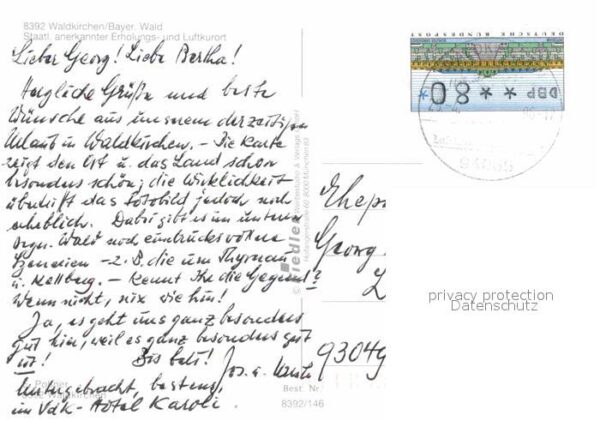 8392 Waldkirchen/Bayer. Wald
Staatl. anerkannter Erholungs- und Luftkurort
Lieber Georg! Liebe Bertha!
Herzliche Grüße und beste
Wünsche aus unserem derzeitigen
Urlaub in Waldkirchen. - Die Karte
zeigt den Ort u. das Land schon
besonders schön; die Wirklichkeit
übertrifft das Fotobild jedoch noch
erheblich. Dabei gibt es im unteren
Bayr. Wald noch eindrucksvollere
Szenerien - z.B. die um Thyrnau
u. Kellberg. - Kennt Ihr die Gegend?
Wenn nicht, nix wie hin!
Ja, es geht uns ganz besonders
gut hier, weil es ganz besonders gut
ist! Bis bald! Jos. u.
Untergebracht, bestens,
im VdK-Hotel Karoli.
Best. Nr.
8392/146
DEUTSCHE BUNDESPOST
DBP * * * 80 *
Ehepr
Georg
93049
privacy protection
Datenschutz